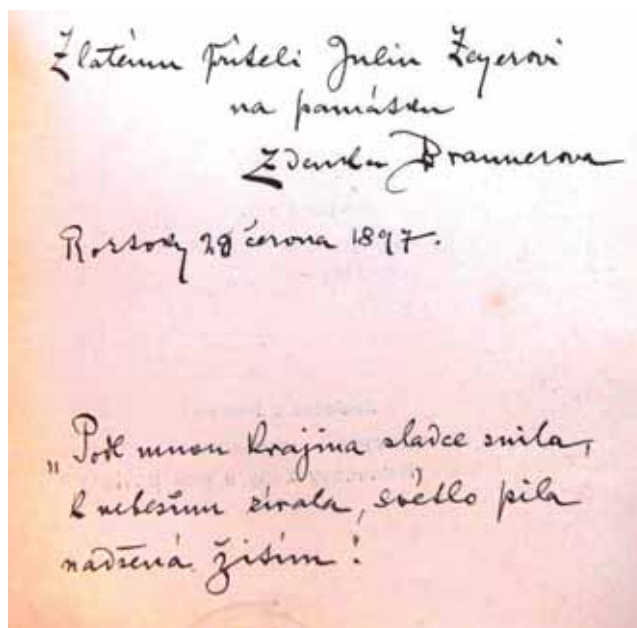 Zlatému příteli Juliu Zeyerovi
na památku
Zdenka Braunerova
Roztoky 28 června 1897.
„Pode mnou krajina sladce snila,
k nebesům zírala, světlo pila
nadšená žitím!